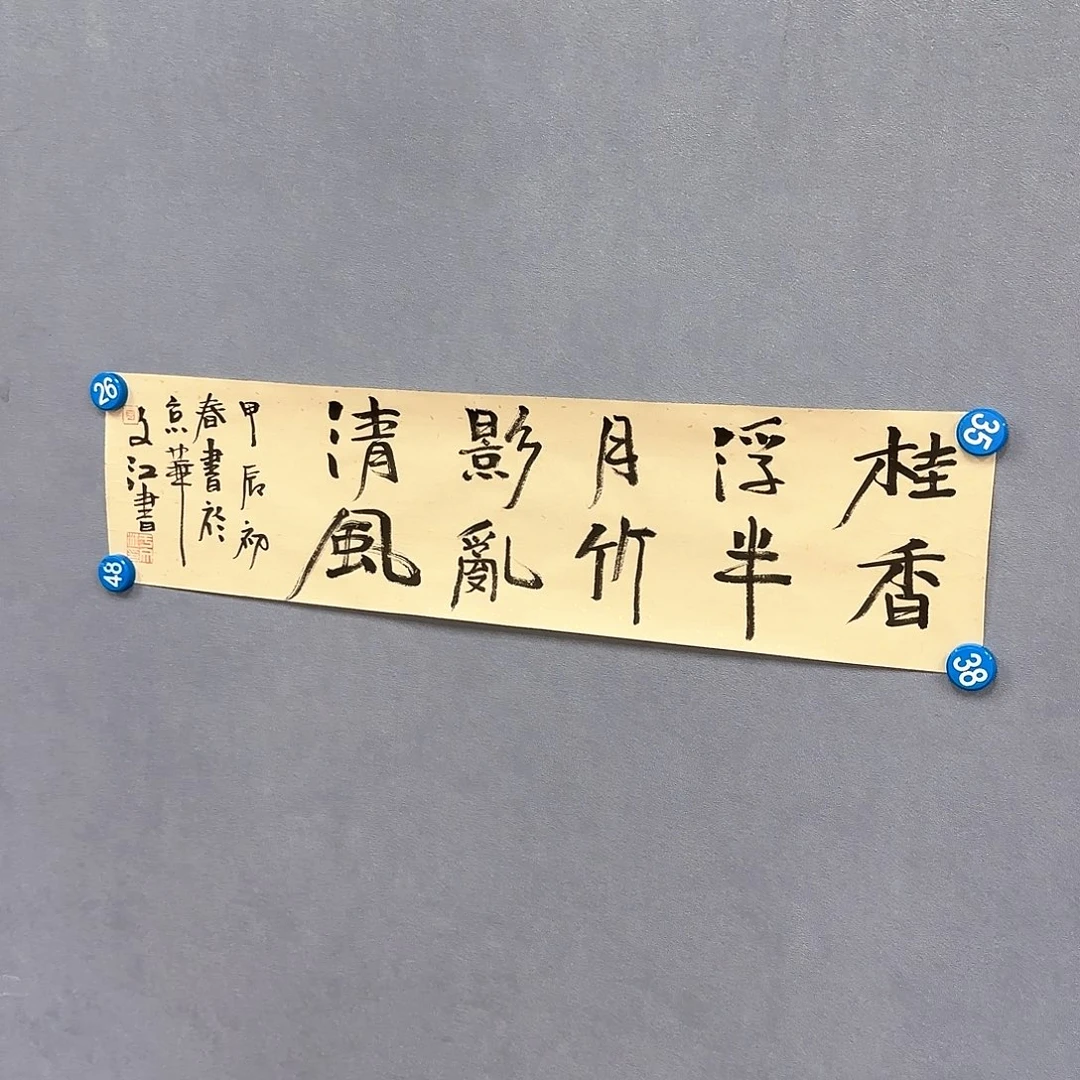 桂香
浮半
月竹
影亂
清風
甲辰初
春書於
京華
文江書
26
35
48
38